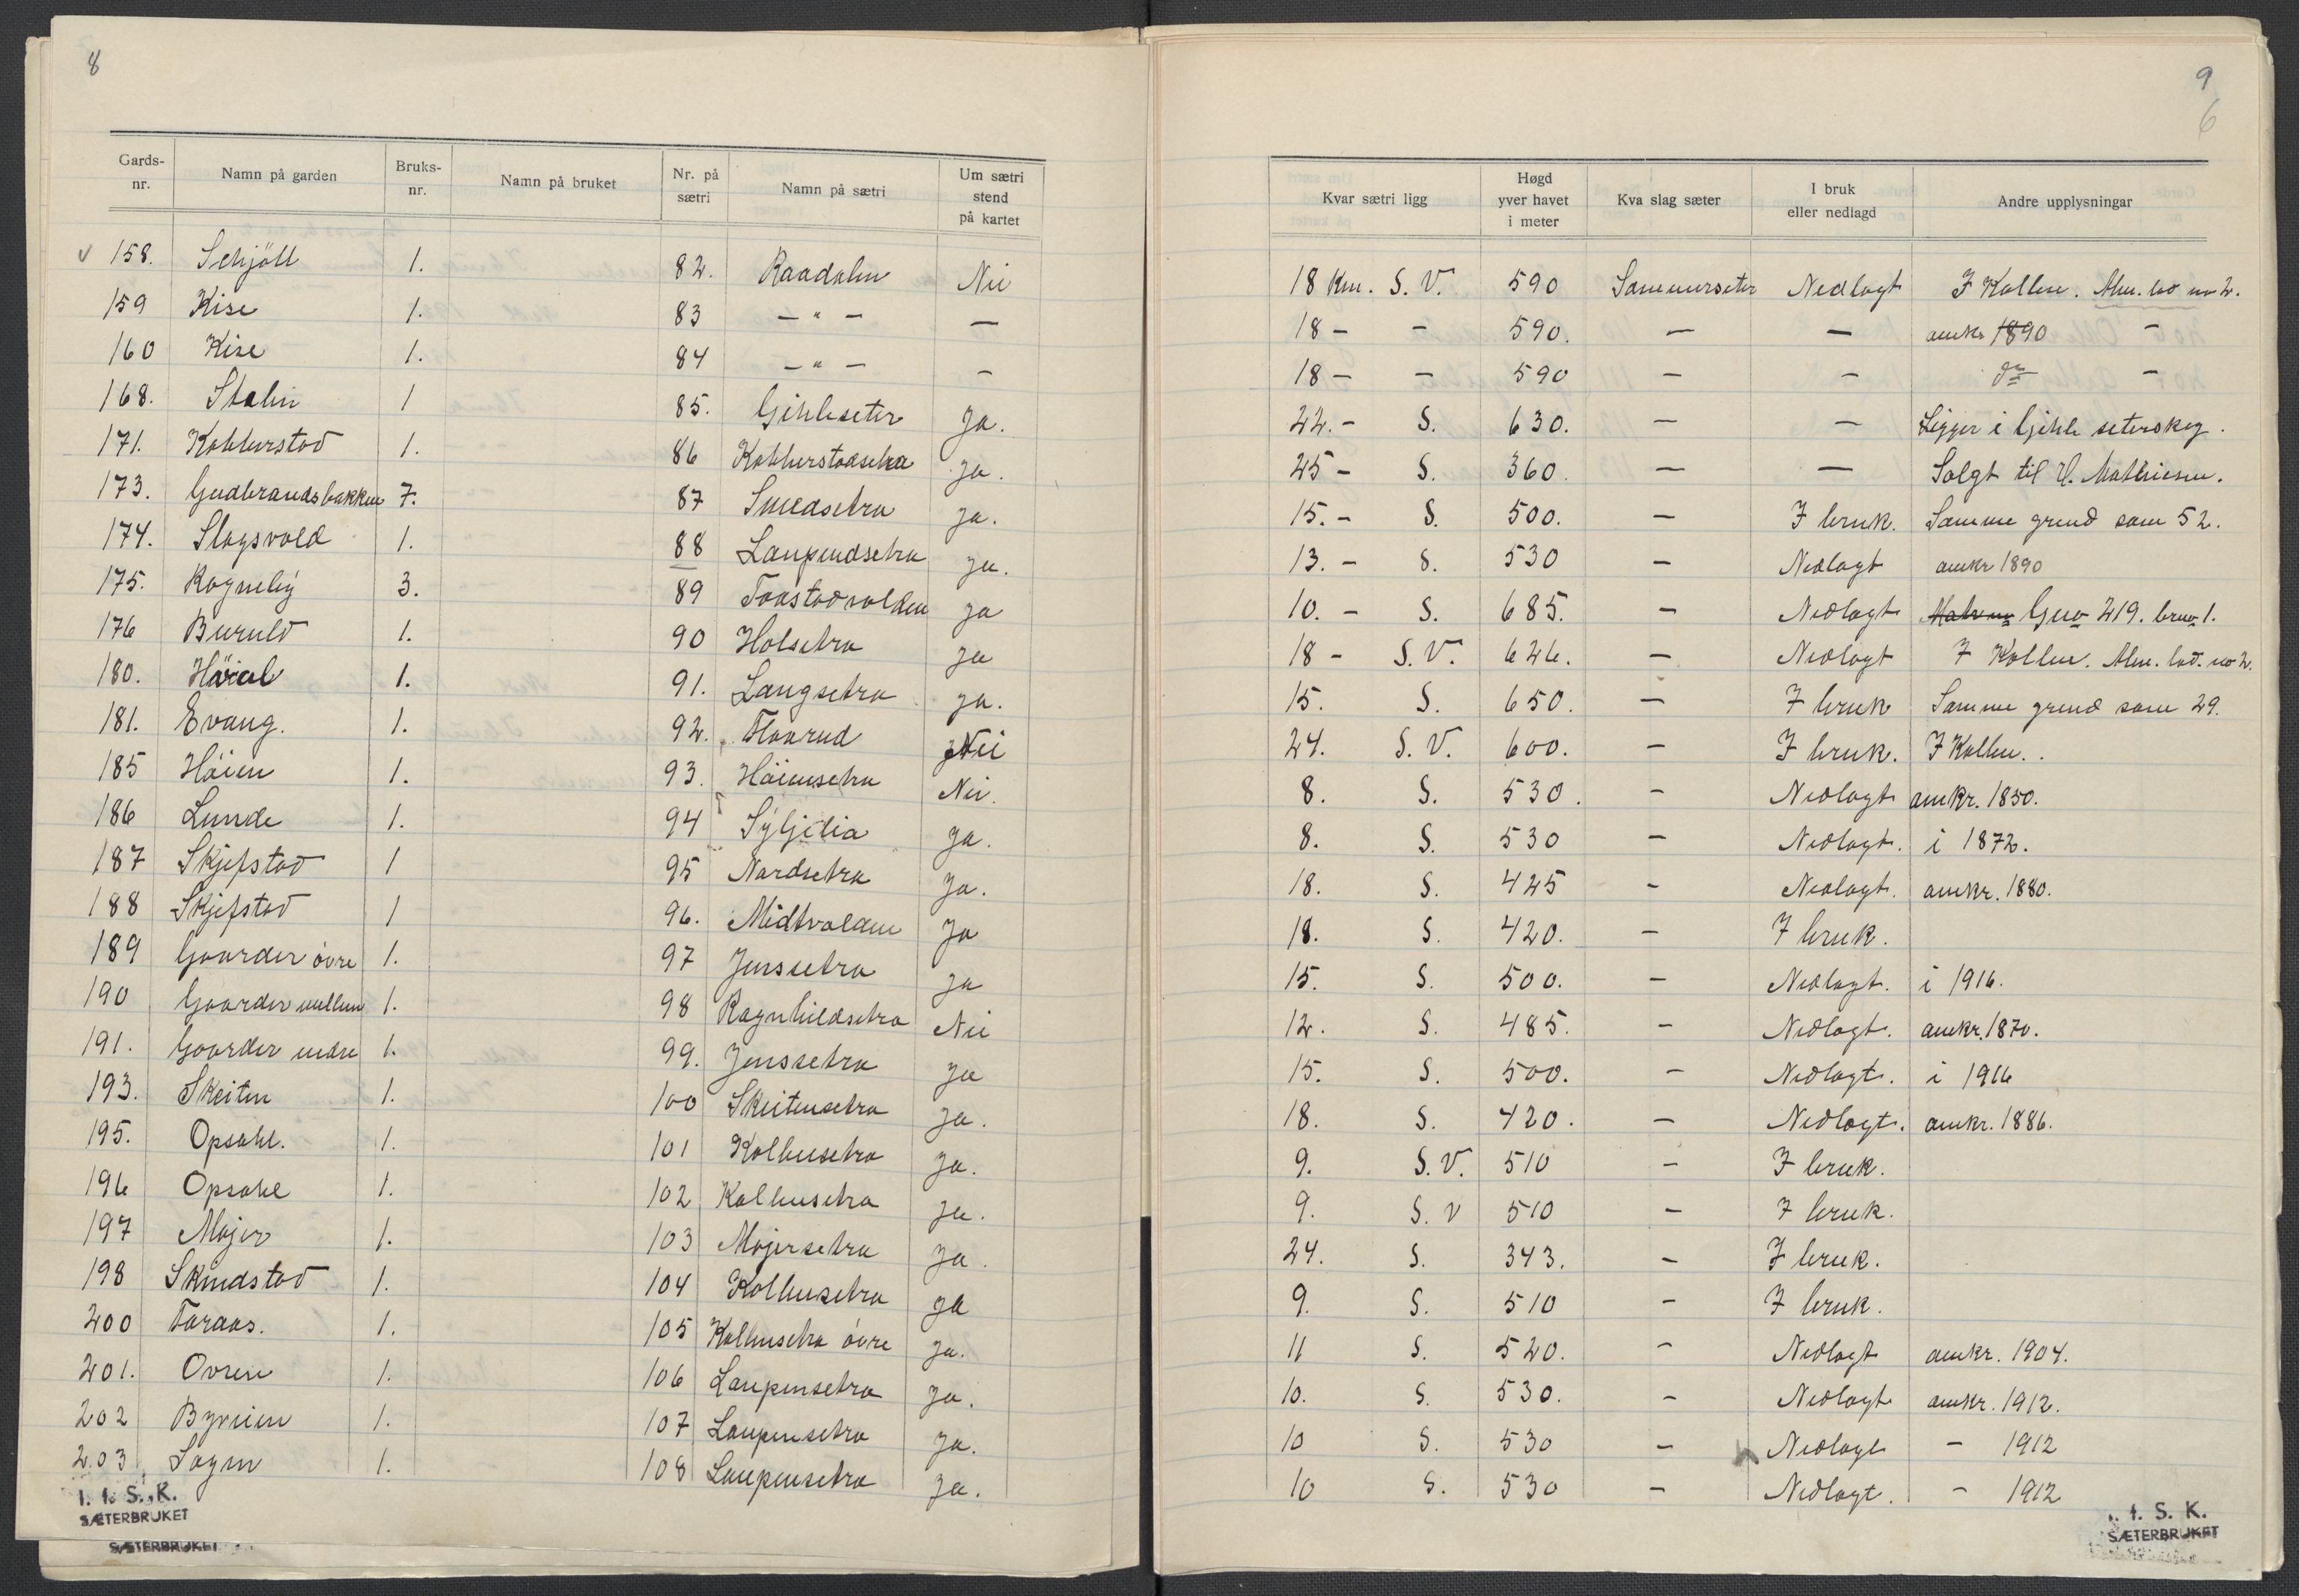 8
Gards-nr. Namn på garden Bruks-nr. Namn på bruket Nr. på sætri Namn på sætri Um sætri stend på kartet
158. Schjöll 1. 82. Raadalen Nei
159 Kise 1. 83 — " — —
160 Kise 1. 84 — " — —
168. Stalin 1 85. Gihleseter Ja.
171. Kobberstad 1. 86 Kobberstadsetra Ja.
173. Gudbrandsbakken 7. 87 Smedsetra Ja.
174. Slagsvold 1. 88 Laupendsetra Ja.
175. Rogneby 3. 89 Taastadvolden Ja
176 Buruld 1. 90 Holsetra Ja
180. Höial 1. 91. Langsetra Ja.
181. Evang. 1. 92. Flaarud Nei
185 Höien 1. 93. Höiensetra Nei.
186 Lunde 1. 94 Syljelia Ja.
187 Skjefstad 1 95 Nordsetra Ja.
188 Skjefstad 1 96. Midtvolden Ja
189 Gaarder övre 1. 97 Jenssetra Ja
190 Gaarder mellem 1. 98 Ragnhildsetra Nei
191. Gaarder nedre 1. 99. Jenssetra Ja
193. Skeiten 1. 100 Skeitensetra Ja.
195. Opsahl. 1. 101 Kolbusetra Ja.
196 Opsahl 1. 102 Kolbusetra Ja.
197 Majer 1. 103 Majersetra Ja.
198 Skindstad 1. 104 Kolbusetra Ja
200 Taraas. 1. 105 Kolbusetra övre Ja.
201. Ovren 1. 106 Laupensetra Ja.
202 Byreien 1. 107 Laupensetra Ja.
203 Sogn 1. 108 Laupensetra Ja.
I. f. S. K.
SÆTERBRUKET
SÆTERBRUKET
9
6
Kvar sætri ligg Høgd yver havet i meter Kva slag sæter I bruk eller nedlagd Andre upplysningar
18 Km. S. V. 590 Sommerseter Nedlagt I Kollen. Alm. lod no 2.
18 — — 590. — — omkr 1890 —
18 — — 590 — — do —
22. — S. 630. — — Ligger i Gihle seterskog.
25 — S. 360. — — Solgt til H. Mathiesen.
15. — S. 500. — I bruk. Samme grend som 52.
13. — S. 530 — Nedlagt omkr 1890
10. — S. 685. — Nedlagt Gno 219. brno 1.
18 — S. V. 626. — Nedlagt I Kollen. Alm. lod. no 2.
15. S. 650. — I bruk Samme grend som 29.
24. S. V. 600. — I bruk. I Kollen.
8. S. 530. — Nedlagt omkr. 1850.
8. S. 530 — Nedlagt. i 1872.
18. S. 425 — Nedlagt. omkr. 1880.
18. S. 420. — I bruk.
15. S. 500. — Nedlagt. i 1916.
12. S. 485. — Nedlagt. omkr. 1870.
15. S. 500. — Nedlagt. i 1916
18. S. 420. — Nedlagt. omkr. 1886.
9. S. V. 510 — I bruk.
9. S. V 510 — I bruk.
24. S. 343. — I bruk.
9. S. 510 — I bruk.
11 S. 520. — Nedlagt omkr. 1904.
10. S. 530. — Nedlagt omkr. 1912.
10 S. 530 — Nedlagt — 1912
10 S. 530 — Nedlagt. — 1912
f. S. K.
SÆTERBRUKET